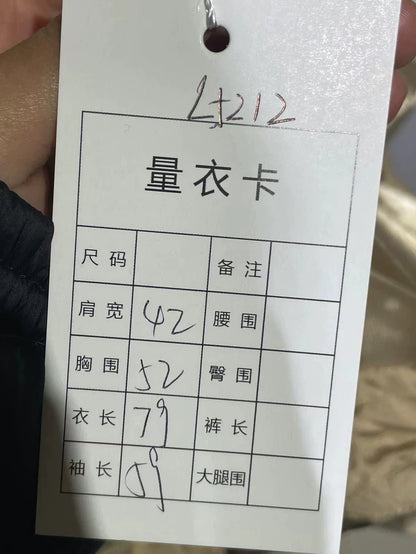 LJ212
量衣卡
尺码 备注
肩宽 42 腰围
胸围 52 臀围
衣长 79 裤长
袖长 59 大腿围